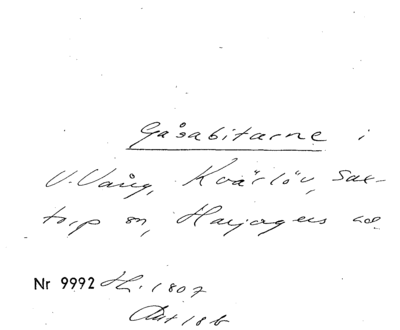 Gåsabitarne i
V. Vång, Kvärlöv, Sax-
torp sn, Harjagers hd.
Nr 9992 Hi. 1807
Akt 18 b